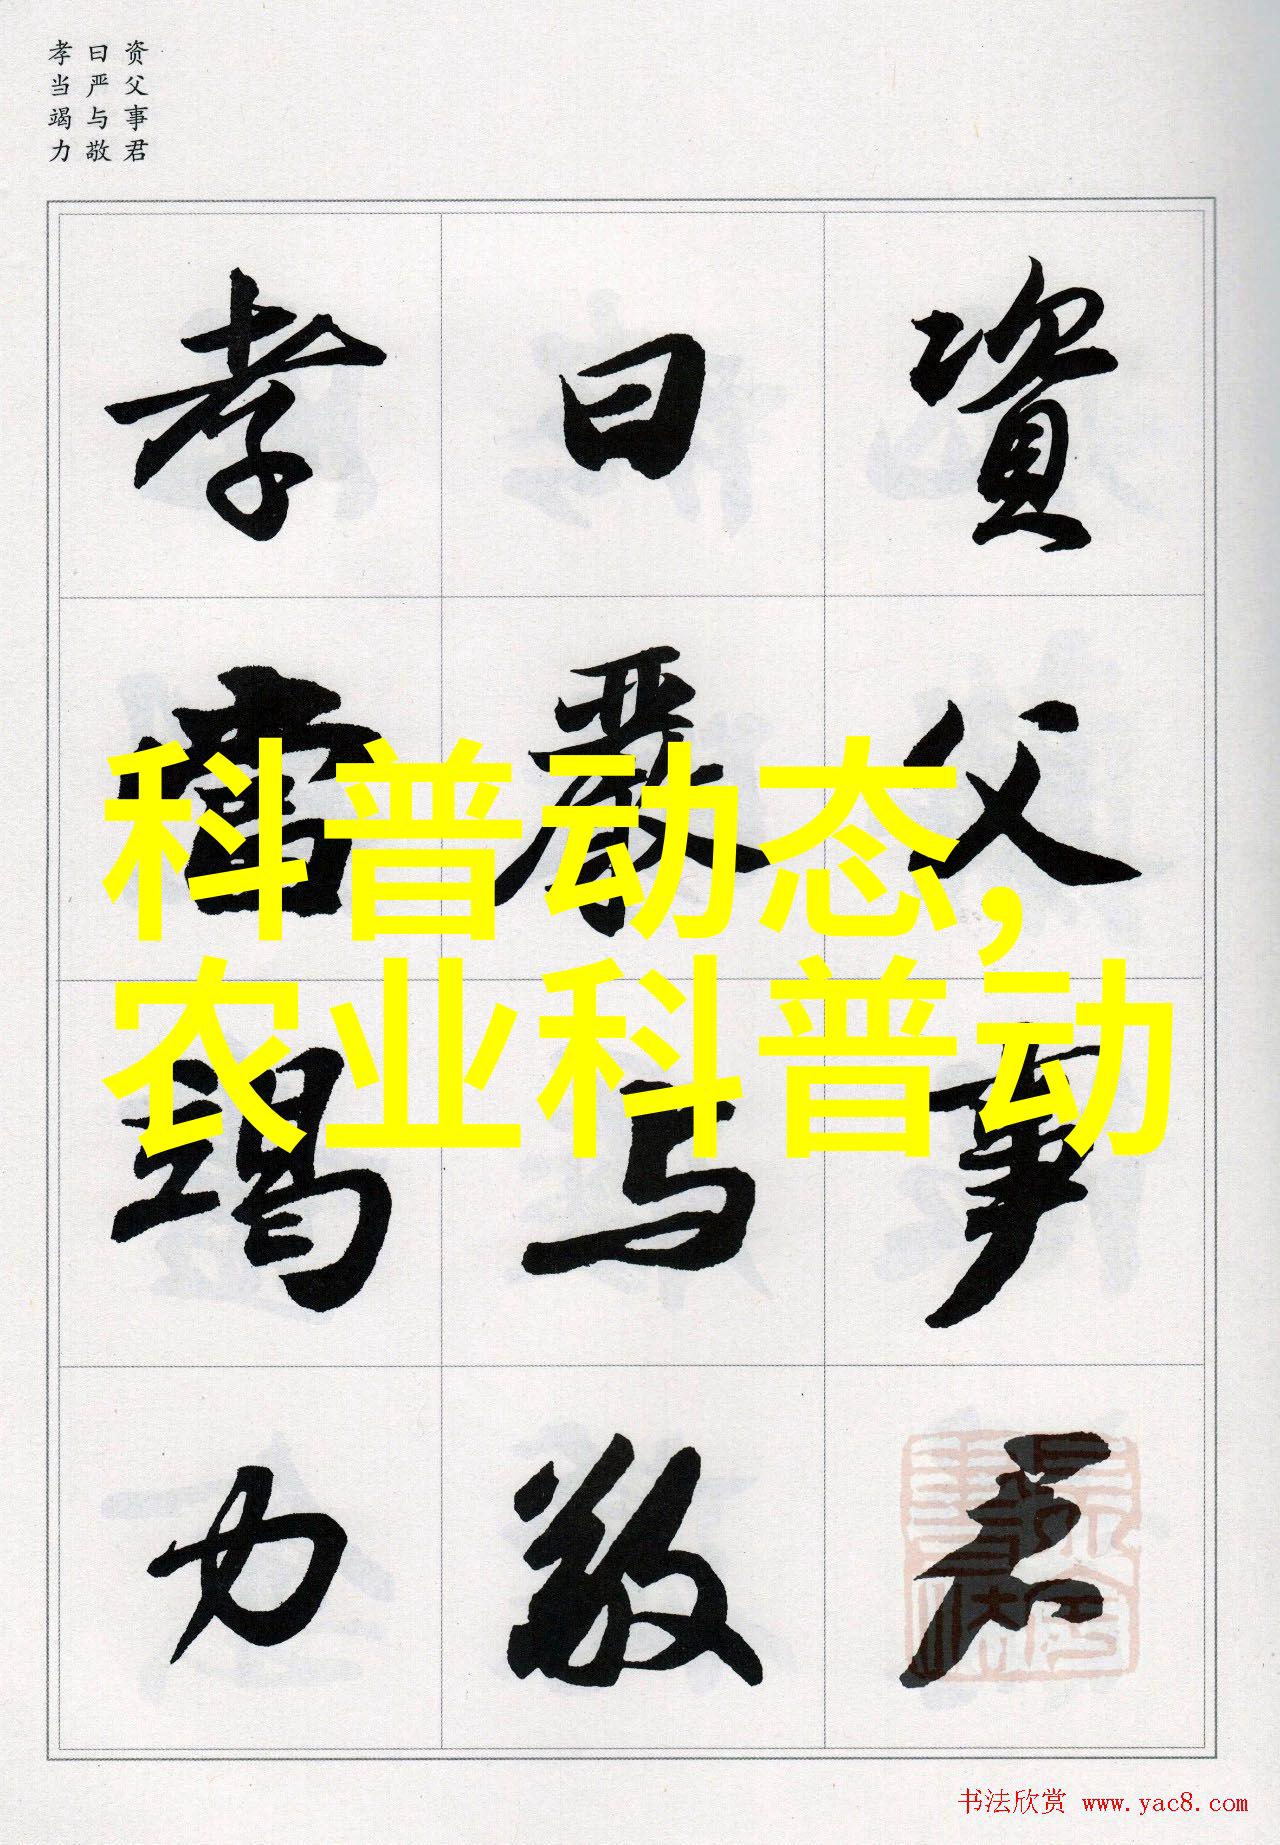 资父事君
曰严与敬
孝当竭力
資父事君
曰嚴与敬
孝當竭力
科普动态,
农业科普动
书法欣赏 www.yac8.com